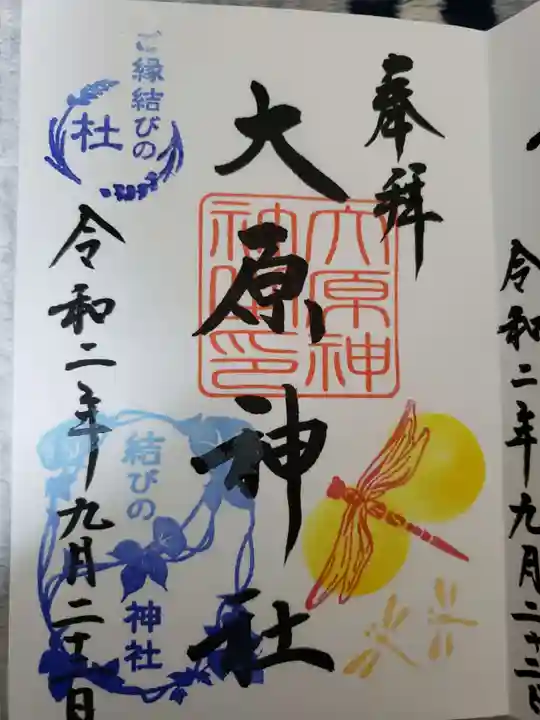 奉拝
大原神社
大原神
社之印
ご縁結びの
杜
令和二年九月二十二日
結びの
神社
令和二年九月二十二日